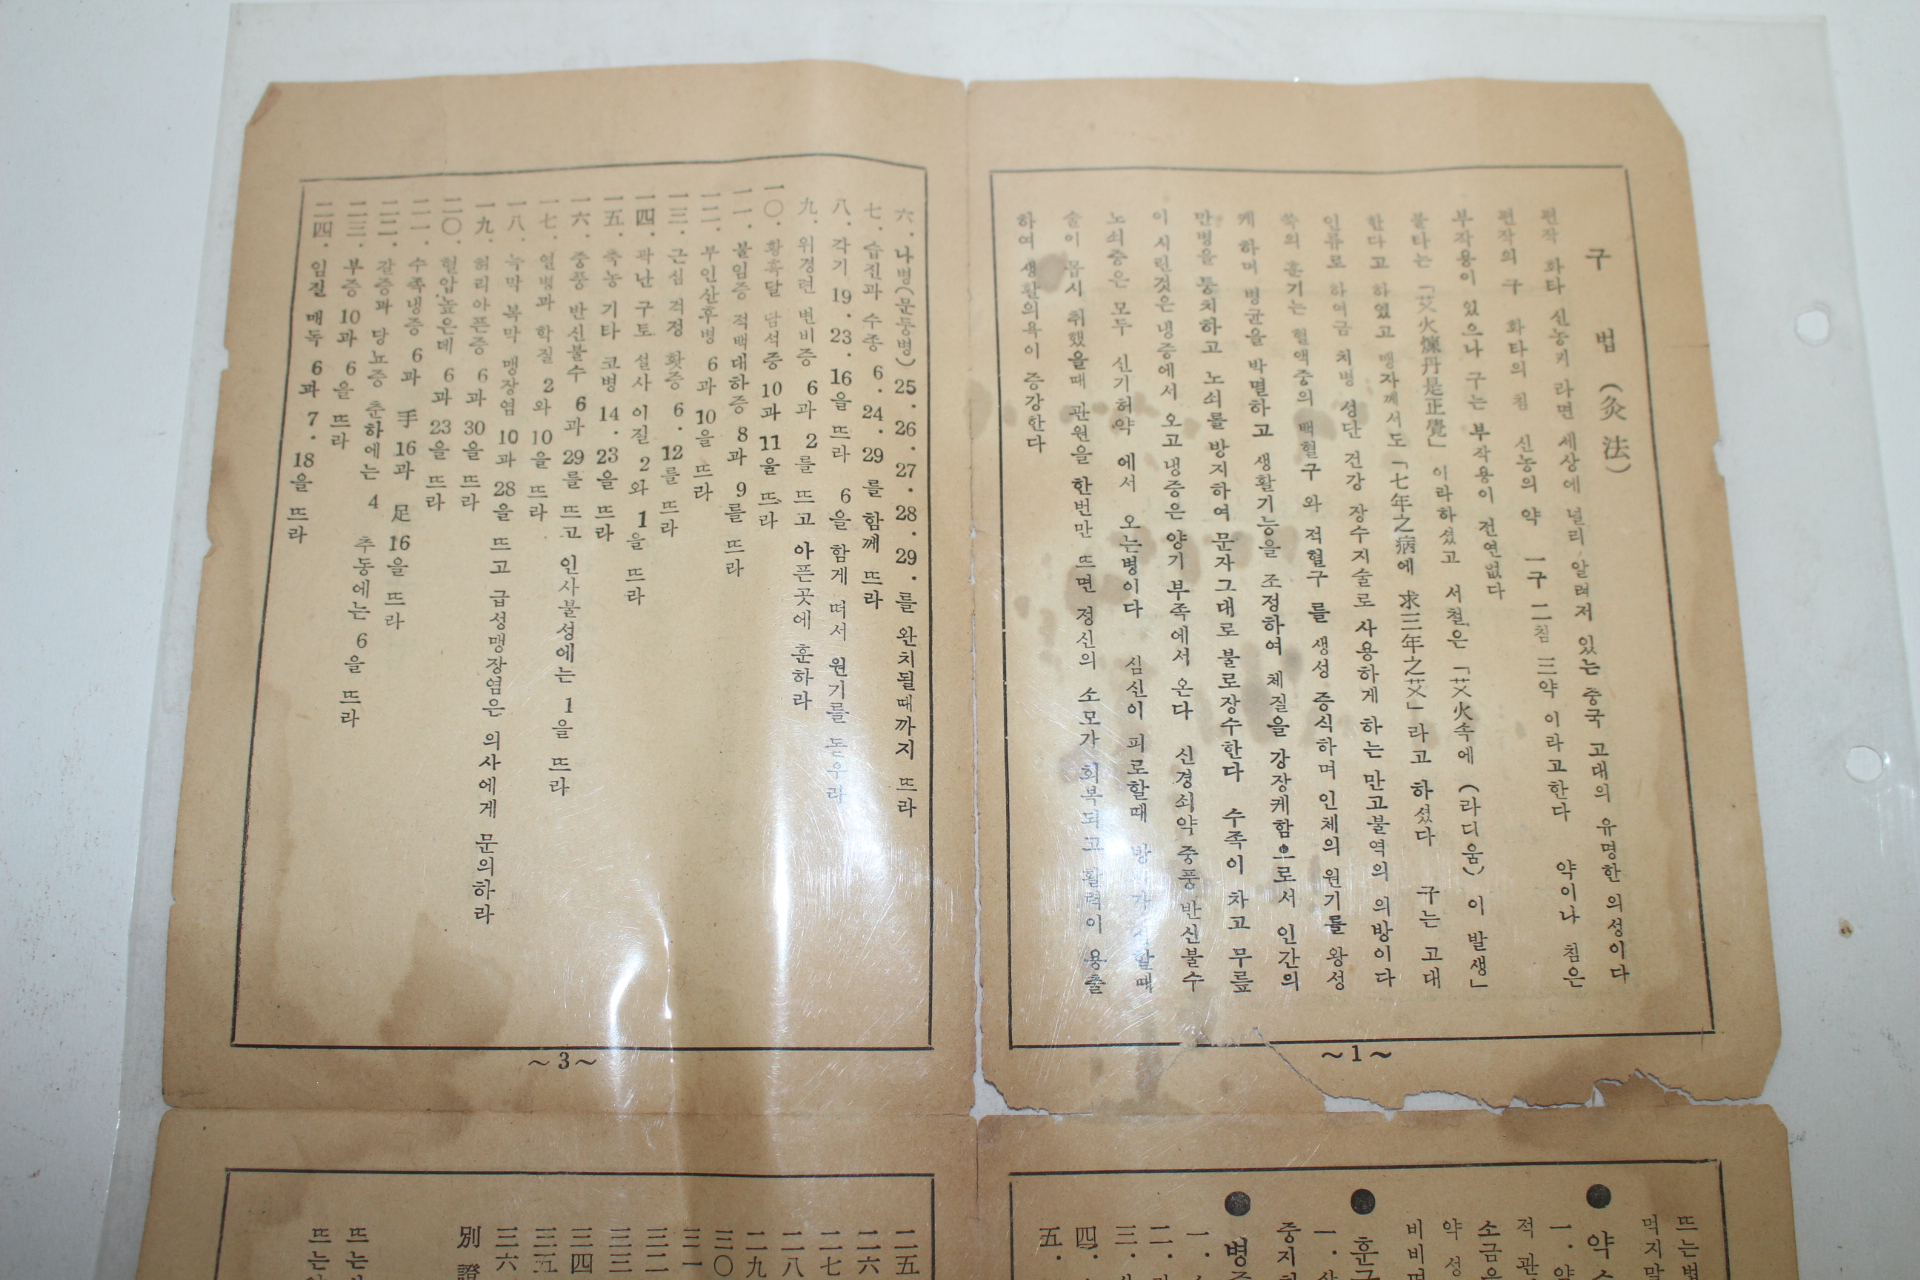 구 법 (灸法)
편작 화타 신농키 라면 세상에 널리 알려저 있는 중국 고대의 유명한 의성이다
편작의 구 화타의 침 신농의 약 一구 二침 三약 이라고한다 약이나 침은
부작용이 있으나 구는 부작용이 전연없다
불타는 「艾火煉丹是正覺」 이라하셨고 서철은 「艾火속에 (라디움) 이 발생」
한다고 하였고 맹자께서도 「七年之病에 求三年之艾」라고 하셨다 구는 고대
인류로 하여금 치병 성단 건강 장수지술로 사용하게 하는 만고불역의 의방이다
쑥의 훈기는 혈액중의 백혈구 와 적혈구 를 생성 증식하며 인체의 원기를 왕성
케 하며 병균을 박멸하고 생활기능을 조정하여 체질을 강장케함으로서 인간의
만병을 통치하고 노쇠를 방지하여 문자그대로 불로장수한다 수족이 차고 무릎
이 시린것은 냉증에서 오고 냉증은 양기 부족에서 온다 신경쇠약 중풍 반신불수
노쇠증은 모두 신기허약 에서 오는병이다 심신이 피로할때
술이 몹시 취했을때 관원을 한번만 뜨면 정신의 소모가 회복되고 활력이 용출
하여 생활의욕이 증강한다
~1~
六. 나병(문둥병) 25. 26. 27. 28. 29. 를 완치될때까지 뜨라
七. 습진과 수종 6. 24. 29 를 함께 뜨라
八. 각기 19. 23. 16을 뜨라 6을 함게 떠서 원기를 돋우라
九. 위경련 변비증 6과 2를 뜨고 아픈곳에 훈하라
一〇. 황흑달 담석증 10과 11을 뜨라
一一. 불임증 적백대하증 8과 9를 뜨라
一二. 부인산후병 6과 10을 뜨라
一三. 근심 걱정 홧증 6. 12를 뜨라
一四. 곽난 구토 설사 이질 2와 1을 뜨라
一五. 축농 기타 코병 14. 23을 뜨라
一六. 중풍 반신불수 6과 29를 뜨고 인사불성에는 1을 뜨라
一七. 열병과 학질 2와 10을 뜨라
一八. 녹막 복막 맹장염 10과 28을 뜨고 급성맹장염은 의사에게 문의하라
一九. 허리아픈증 6과 30을 뜨라
二〇. 혈압높은데 6과 23을 뜨라
二一. 수족냉증 6과 手16과 足16을 뜨라
二二. 갈증과 당뇨증 춘하에는 4 추동에는 6을 뜨라
二三. 부증 10과 6을 뜨라
二四. 임질 매독 6과 7. 18을 뜨라
~3~
뜨는
먹지말
● 약
一. 약
적 관
소금은
약 성
비비며
● 훈
一.
중지
● 병
一.
二.
三.
四.
五.
二五
二六
二七
二八
二九
三〇
三一
三二
三三
三四
三五
三六
別 證
뜨는
뜨는